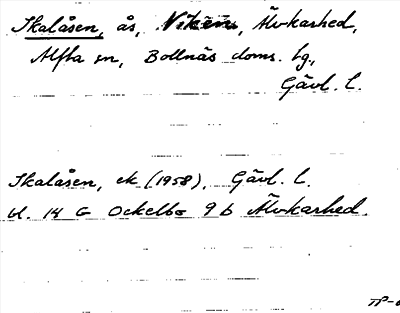 Skalåsen, ås, Viken, Älvkarhed,
Alfta sn, Bollnäs doms. tg.,
Gävl. l.
Skalåsen, ek (1958), Gävl. l.
bl. 14 G Ockelbo 9 b Älvkarhed.